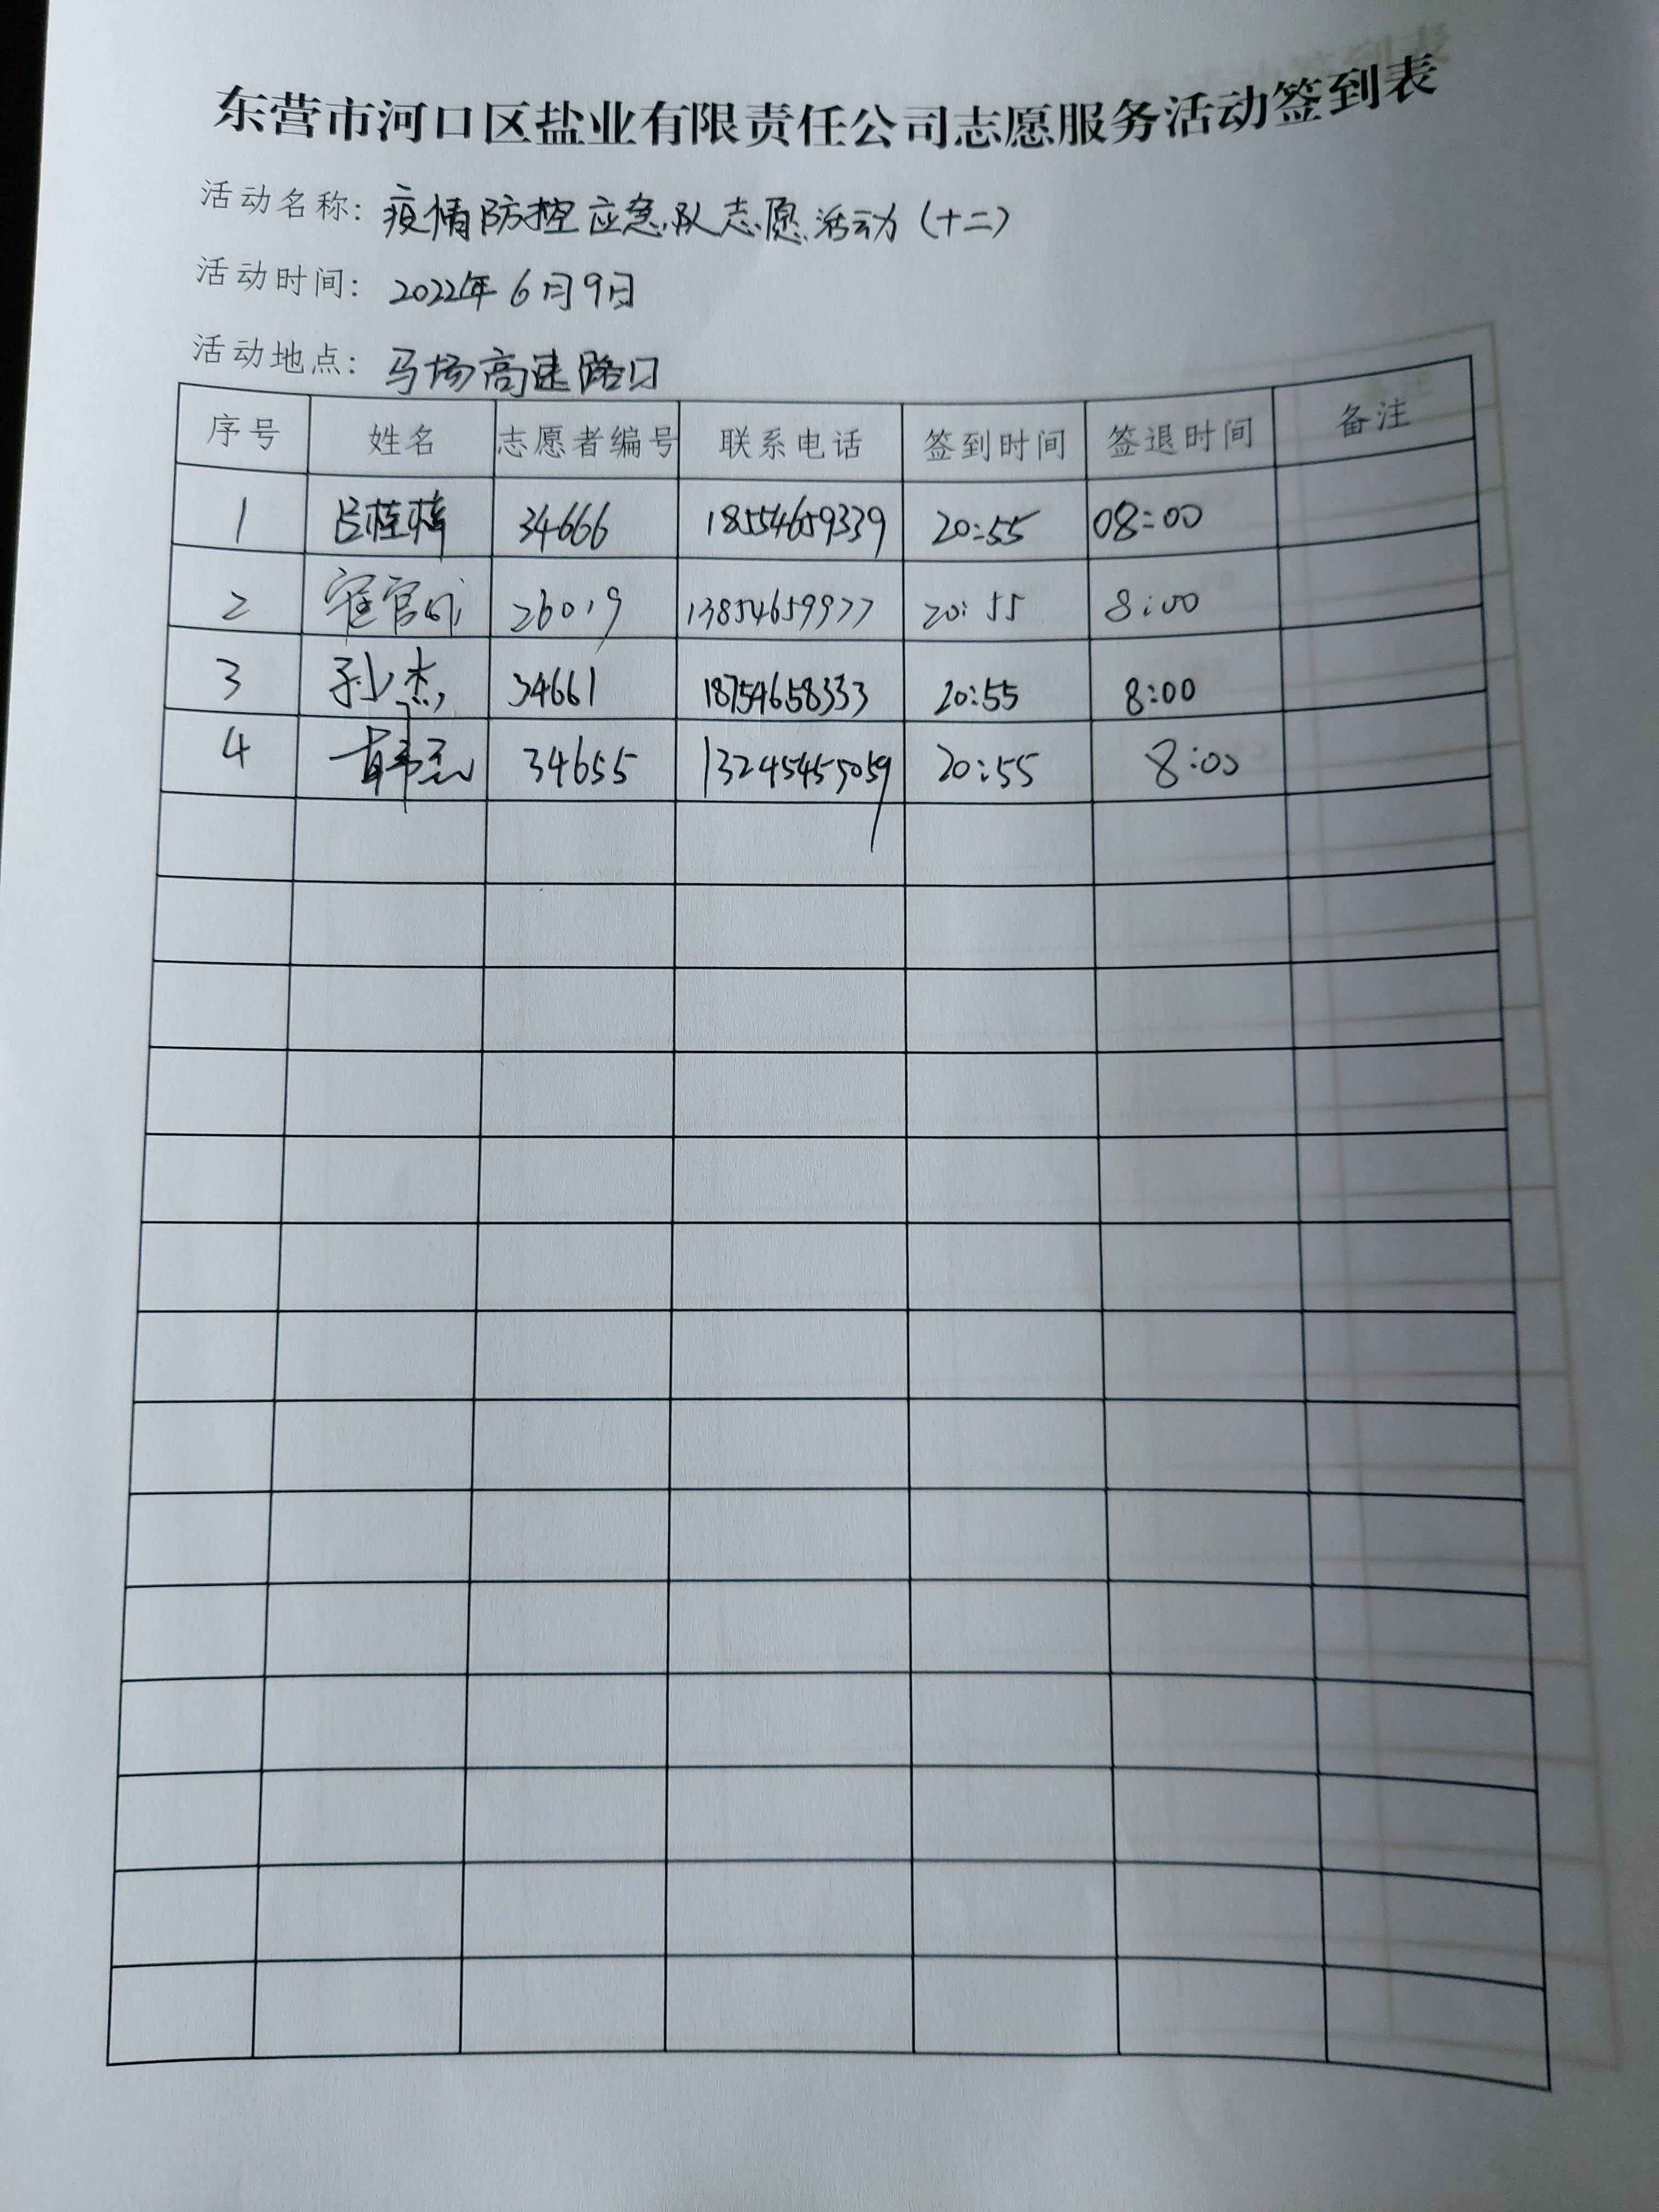 东营市河口区盐业有限责任公司志愿服务活动签到表
活动名称：疫情防控应急队志愿活动（十二）
活动时间：2022年6月9日
活动地点：马场高速路口
序号 姓名 志愿者编号 联系电话 签到时间 签退时间 备注
1 吕桂 34666 18554659339 20:55 08:00
2 官 26019 13854659977 20:55 8:00
3 孙杰 34661 18754658333 20:55 8:00
4 34655 13245455059 20:55 8:00